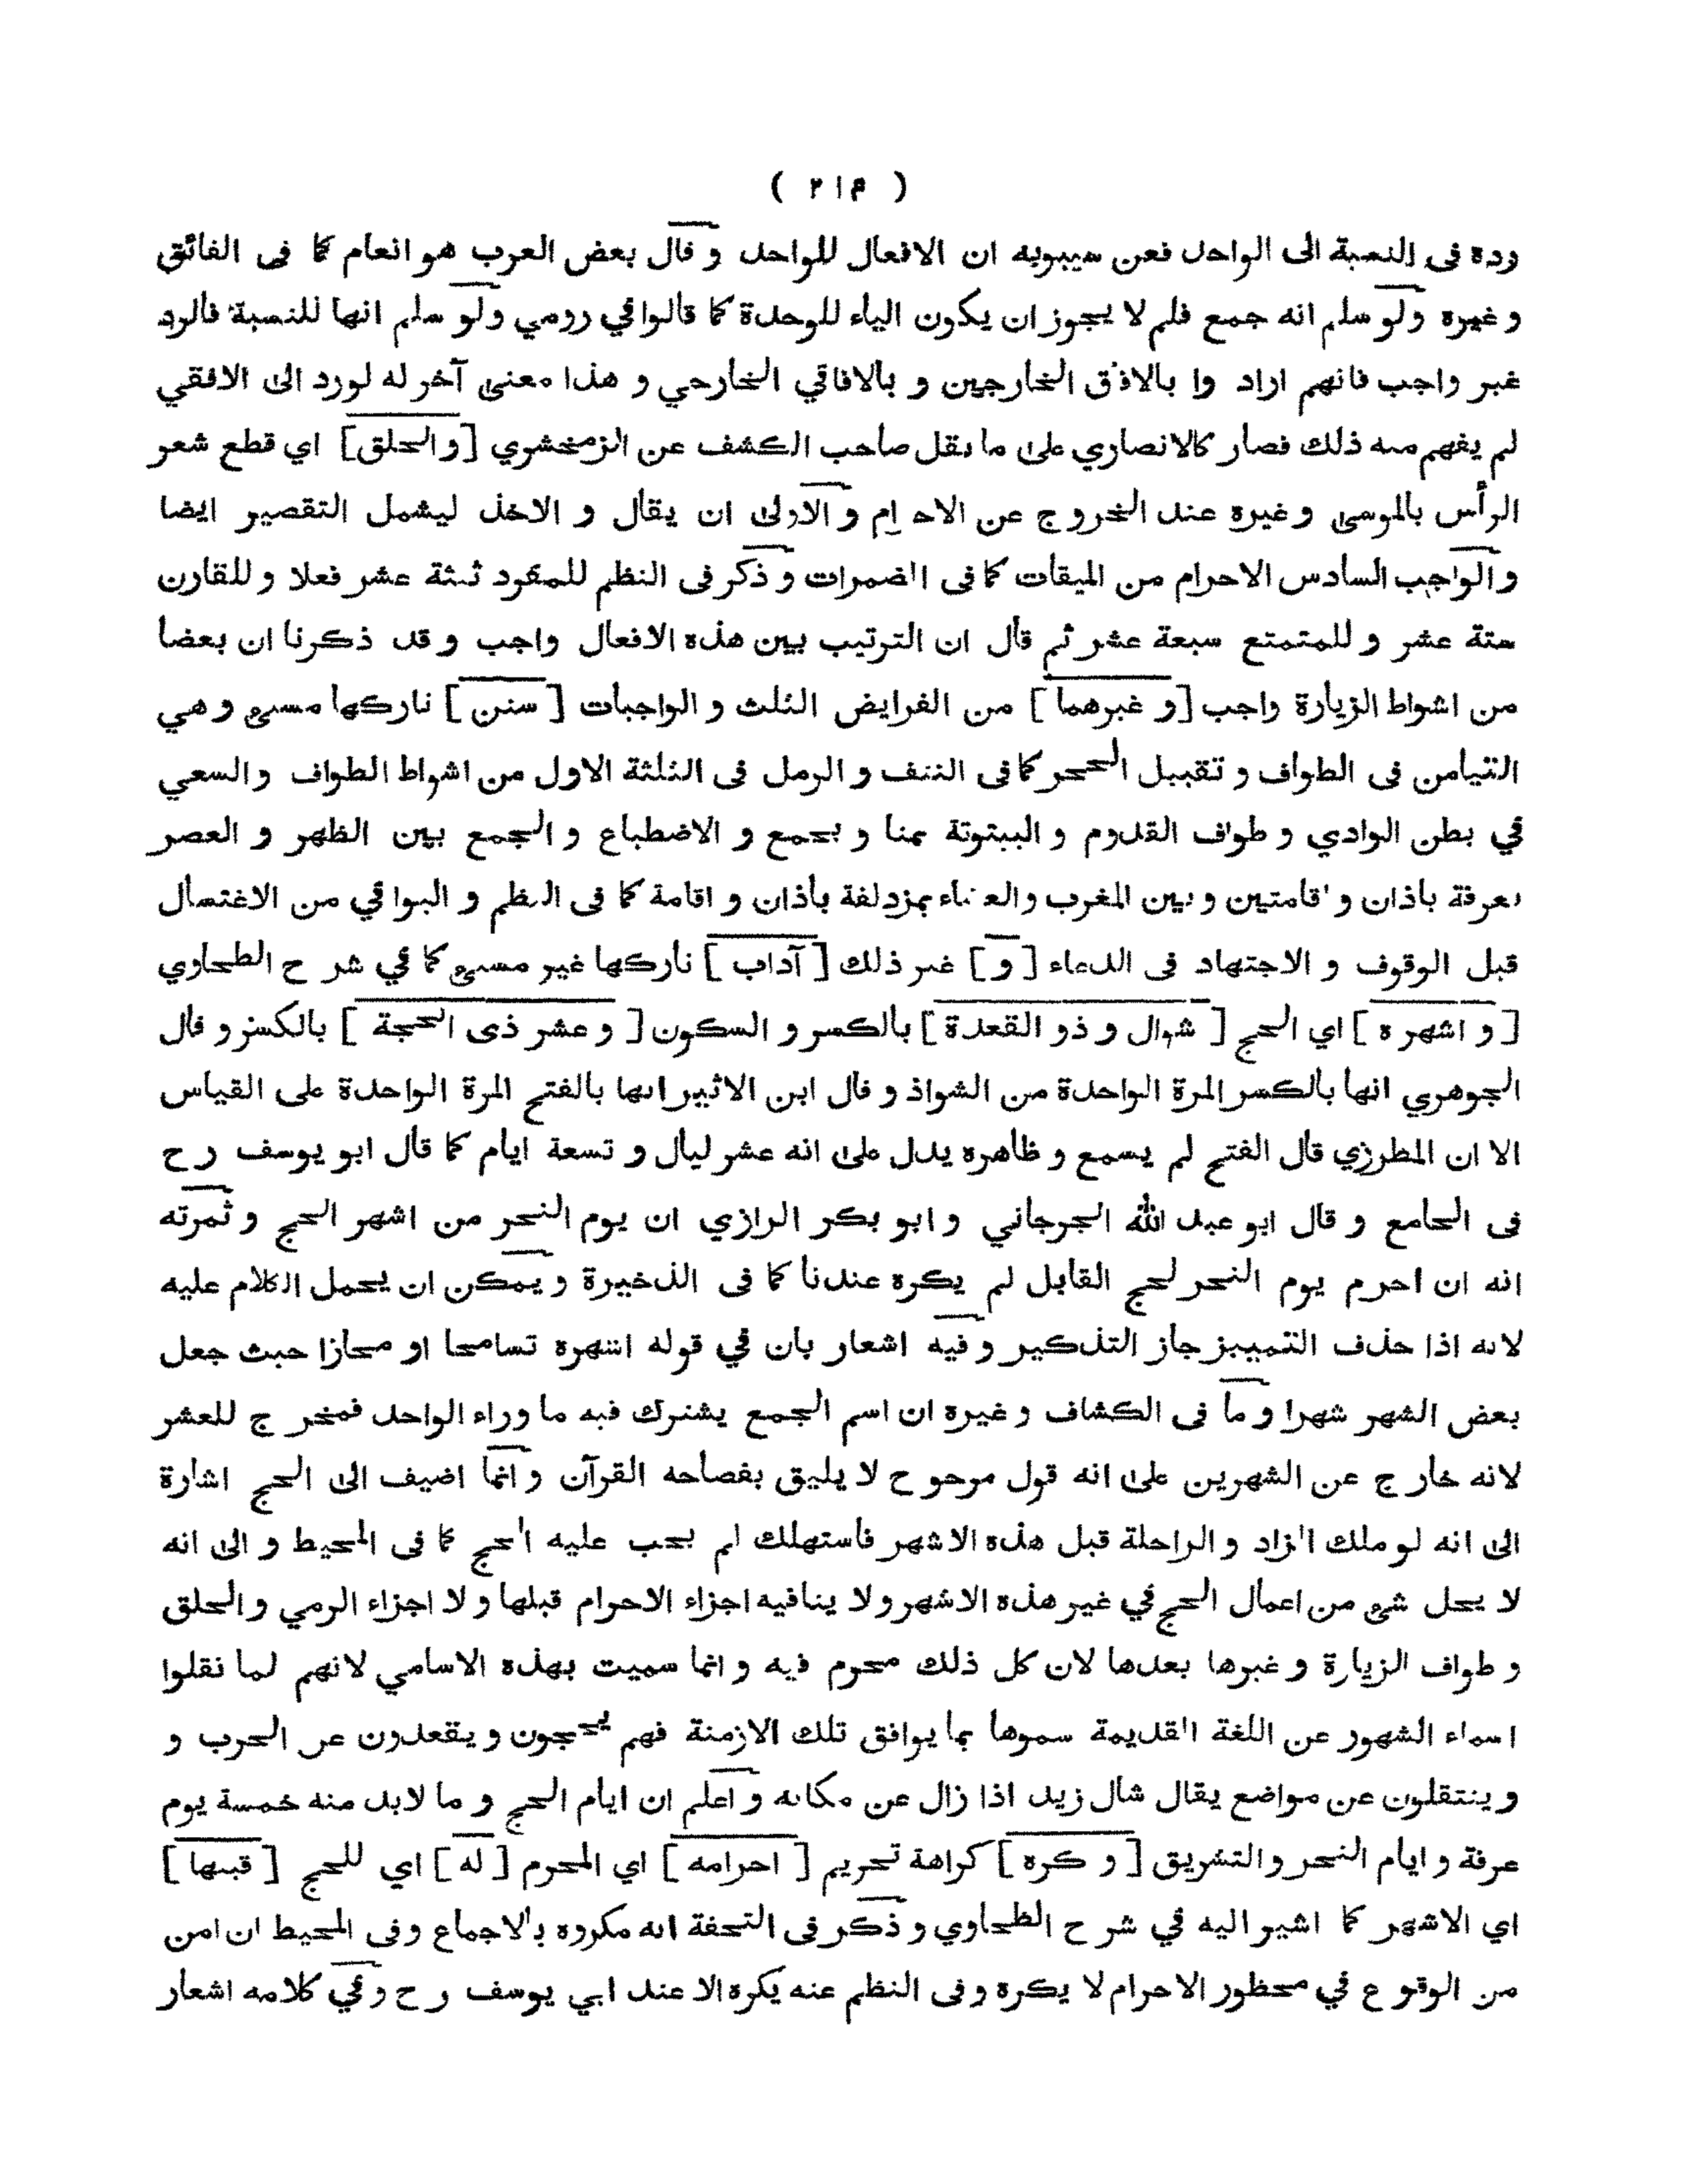 ( ٢١٤ )
رده فى النسبة الى الواحد فعن سيبويه ان الافعال للواحد و قال بعض العرب هو انعام كما فى الفائق
و غيره ولو سلم انه جمع فلم لا يجوز ان يكون الياء للوحدة كما قالوا في رومي ولو سلم انها للنسبة فالرد
غير واجب فانهم اراد وا بالافق الخارجين و بالافاقي الخارجي و هذا معنى آخر له لورد الى الافقي
لم يفهم منه ذلك فصار كالانصاري على ما نقل صاحب الكشف عن الزمخشري [ و الحلق ] اي قطع شعر
الرأس بالموسى و غيره عند الخروج عن الاحرام و الاولى ان يقال و الاخذ ليشمل التقصير ايضا
و الواجب السادس الاحرام من الميقات كما فى المضمرات و ذكر فى النظم للمفرد ثلثة عشر فعلا و للقارن
ستة عشر و للمتمتع سبعة عشر ثم قال ان الترتيب بين هذه الافعال واجب و قد ذكرنا ان بعضا
من اشواط الزيارة واجب [ و غيرهما ] من الفرايض الثلث و الواجبات [ سنن ] تاركها مسئ و هي
التيامن فى الطواف و تقبيل الحجر كما فى النتف و الرمل فى الثلثة الاول من اشواط الطواف و السعي
في بطن الوادي و طواف القدوم و البيتوتة بمنا و بجمع و الاضطباع و الجمع بين الظهر و العصر
بعرفة باذان و اقامتين و بين المغرب و العشاء بمزدلفة بأذان و اقامة كما فى النظم و البواقي من الاغتسال
قبل الوقوف و الاجتهاد فى الدعاء [ و ] غير ذلك [ آداب ] تاركها غير مسئ كما في شرح الطحاوي
[ و اشهره ] اي الحج [ شوال و ذو القعدة ] بالكسر و السكون [ و عشر ذى الحجة ] بالكسر و قال
الجوهري انها بالكسر المرة الواحدة من الشواذ و قال ابن الاثير انها بالفتح المرة الواحدة على القياس
الا ان المطرزي قال الفتح لم يسمع و ظاهره يدل على انه عشر ليال و تسعة ايام كما قال ابو يوسف رح
فى الجامع و قال ابو عبد الله الجرجاني و ابو بكر الرازي ان يوم النحر من اشهر الحج و ثمرته
انه ان احرم يوم النحر لحج القابل لم يكره عندنا كما فى الذخيرة و يمكن ان يحمل الكلام عليه
لانه اذا حذف التمييز جاز التذكير و فيه اشعار بان في قوله اشهره تسامحا او مجازا حيث جعل
بعض الشهر شهرا و ما فى الكشاف و غيره ان اسم الجمع يشترك فيه ما وراء الواحد فمخرج للعشر
لانه خارج عن الشهرين على انه قول مرجوح لا يليق بفصاحه القرآن و انما اضيف الى الحج اشارة
الى انه لو ملك الزاد و الراحلة قبل هذه الاشهر فاستهلك لم يجب عليه الحج كما فى المحيط و الى انه
لا يحل شئ من اعمال الحج في غير هذه الاشهر و لا ينافيه اجزاء الاحرام قبلها و لا اجزاء الرمي و الحلق
و طواف الزيارة و غيرها بعدها لان كل ذلك محرم فيه و انما سميت بهذه الاسامي لانهم لما نقلوا
اسماء الشهور عن اللغة القديمة سموها بما يوافق تلك الازمنة فهم يحجون و يقعدون عن الحرب و
و ينتقلون عن مواضع يقال شال زيد اذا زال عن مكانه و اعلم ان ايام الحج و ما لابد منه خمسة يوم
عرفة و ايام النحر و التشريق [ و كره ] كراهة تحريم [ احرامه ] اي المحرم [ له ] اي للحج [ قبلها ]
اي الاشهر كما اشير اليه في شرح الطحاوي و ذكر فى التحفة انه مكروه بالاجماع و فى المحيط ان امن
من الوقوع في محظور الاحرام لا يكره و فى النظم عنه يكره الا عند ابي يوسف رح و في كلامه اشعار